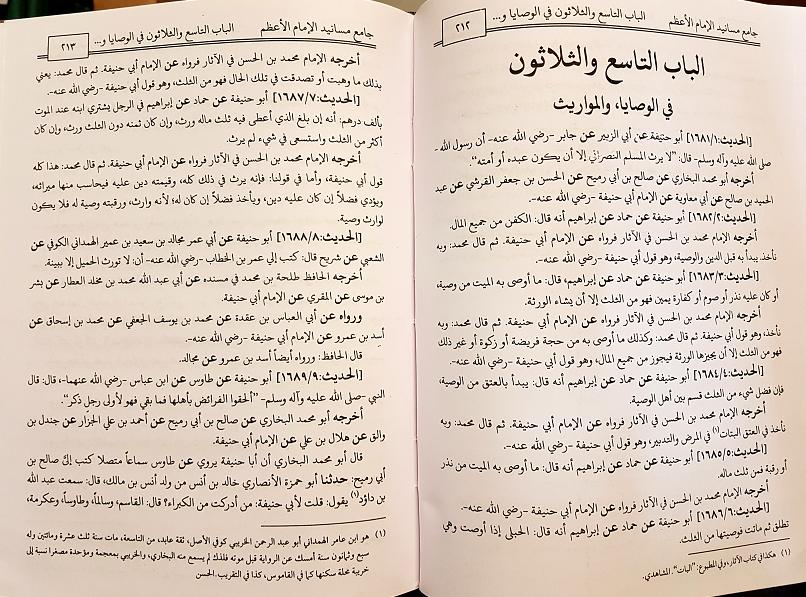 جامع مسانيد الإمام الأعظم الباب التاسع والثلاثون في الوصايا و... ٢١٢
الباب التاسع والثلاثون
في الوصايا، والمواريث
[الحديث:١٦٨١/١] أبو حنيفة عن أبي الزبير عن جابر -رضي الله عنه- أن رسول الله -
صلى الله عليه وآله وسلم- قال: "لا يرث المسلم النصراني إلا أن يكون عبده أو أمته".
أخرجه أبو محمد البخاري عن صالح بن أبي رميح عن الحسن بن جعفر القرشي عن عبد
الحميد بن صالح عن أبي معاوية عن الإمام أبي حنيفة -رضي الله عنه-.
[الحديث:١٦٨٢/٢] أبو حنيفة عن حماد عن إبراهيم أنه قال: الكفن من جميع المال.
أخرجه الإمام محمد بن الحسن في الآثار فرواه عن الإمام أبي حنيفة. ثم قال محمد: وبه
نأخذ. يبدأ به قبل الدين والوصية، وهو قول أبي حنيفة -رضي الله عنه-.
[الحديث:١٦٨٣/٣] أبو حنيفة عن حماد عن إبراهيم، قال: ما أوصى به الميت من وصية،
أو كان عليه نذر أو صوم أو كفارة يمين فهو من الثلث إلا أن يشاء الورثة.
أخرجه الإمام محمد بن الحسن في الآثار فرواه عن الإمام أبي حنيفة. ثم قال محمد: وبه
نأخذ، وهو قول أبي حنيفة. ثم قال محمد: وكذلك ما أوصى به من حجة فريضة أو زكوة أو غير ذلك
فهو من الثلث إلا أن يجيزها الورثة فيجوز من جميع المال، وهو قول أبي حنيفة -رضي الله عنه-.
[الحديث:١٦٨٤/٤] أبو حنيفة عن حماد عن إبراهيم أنه قال: يبدأ بالعتق من الوصية،
فإن فضل شيء من الثلث قسم بين أهل الوصية.
أخرجه الإمام محمد بن الحسن في الآثار فرواه عن الإمام أبي حنيفة. ثم قال محمد: وبه
نأخذ في العتق البتات(١) في المرض والتدبير، وهو قول أبي حنيفة -رضي الله عنه-.
[الحديث:١٦٨٥/٥] أبو حنيفة عن حماد عن إبراهيم أنه قال: ما أوصى به الميت من نذر
أو رقبة فمن ثلث ماله.
أخرجه الإمام محمد بن الحسن في الآثار فرواه عن الإمام أبي حنيفة -رضي الله عنه-.
[الحديث:١٦٨٦/٦] أبو حنيفة عن حماد عن إبراهيم أنه قال: الحبلى إذا أوصت وهي
تطلق ثم ماتت فوصيتها من الثلث.
(١) هكذا في كتاب الآثار، وفي المطبوع: "البات". المشاهدي.
جامع مسانيد الإمام الأعظم الباب التاسع والثلاثون في الوصايا و... ٢١٣
أخرجه الإمام محمد بن الحسن في الآثار فرواه عن الإمام أبي حنيفة. ثم قال محمد: يعني
بذلك ما وهبت أو تصدقت في تلك الحال فهو من الثلث، وهو قول أبي حنيفة -رضي الله عنه-.
[الحديث:١٦٨٧/٧] أبو حنيفة عن حماد عن إبراهيم في الرجل يشتري ابنه عند الموت
بألف درهم: أنه إن بلغ الذي أعطى فيه ثلث ماله ورث، وإن كان ثمنه دون الثلث ورث، وإن كان
أكثر من الثلث واستسعى في شيء لم يرث.
أخرجه الإمام محمد بن الحسن في الآثار فرواه عن الإمام أبي حنيفة. ثم قال محمد: هذا كله
قول أبي حنيفة، وأما في قولنا: فإنه يرث في ذلك كله، وقيمته دين عليه فيحاسب منها ميراثه،
ويؤدي فضلاً إن كان عليه دين، ويأخذ فضلاً إن كان له؛ لأنه وارث، ورقبته وصية له فلا يكون
لوارث وصية.
[الحديث:١٦٨٨/٨] أبو حنيفة عن أبي عمر مجالد بن سعيد بن عمير الهمداني الكوفي عن
الشعبي عن شريح قال: كتب إلي عمر بن الخطاب -رضي الله عنه- أن: لا تورث الحميل إلا ببينة.
أخرجه الحافظ طلحة بن محمد في مسنده عن أبي عبد الله محمد بن مخلد العطار عن بشر
بن موسى عن المقري عن الإمام أبي حنيفة.
ورواه عن أبي العباس بن عقدة عن محمد بن يوسف الجعفي عن محمد بن إسحاق عن
أسد بن عمرو عن الإمام أبي حنيفة -رضي الله عنه-.
قال الحافظ: ورواه أيضاً أسد بن عمرو عن مجالد.
[الحديث:١٦٨٩/٩] أبو حنيفة عن طاوس عن ابن عباس -رضي الله عنهما-، قال: قال
النبي -صلى الله عليه وآله وسلم- "ألحقوا الفرائض بأهلها فما بقي فهو لأولى رجل ذكر".
أخرجه أبو محمد البخاري عن صالح بن أبي رميح عن أحمد بن علي الجزّار عن جندل بن
والق عن هلال بن علي عن الإمام أبي حنيفة.
قال أبو محمد البخاري أن أبا حنيفة يروي عن طاوس سماعاً متصلا كتب إليّ صالح بن
أبي رميح: حدثنا أبو حمزة الأنصاري خالد بن أنس من ولد أنس بن مالك، قال: سمعت عبد الله
بن داؤد(١) يقول: قلت لأبي حنيفة: من أدركت من الكبراء؟ قال: القاسم، وسالماً، وطاوساً، وعكرمة،
(١) هو ابن عامر الهمداني أبو عبد الرحمن الخريبي كوفي الأصل، ثقة عابد، من التاسعة، مات سنة ثلث عشرة ومائتين وله
سبع وثمانون سنة أمسك عن الرواية قبل موته فلذلك لم يسمع منه البخاري، والخريبي بمعجمة وموحدة مصغرا نسبة إلى
خريبة محلة سكنها كما في القاموس، كذا في التقريب. الحسن